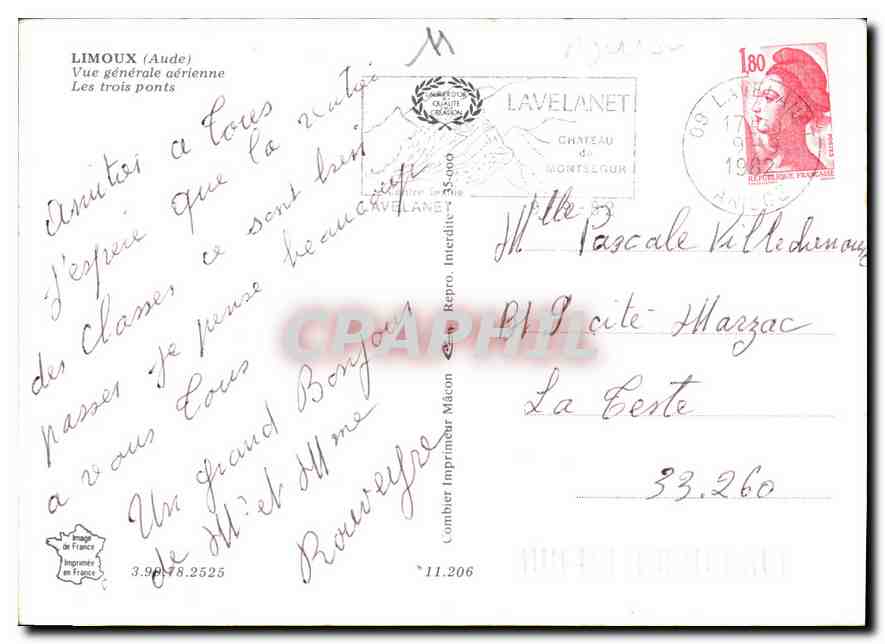 LIMOUX (Aude)
Vue générale aérienne
Les trois ponts
Amitiés a Tous
J'espère que la
des Classes ce sont bien
passer je pense beaucoup
a vous Tous
Un grand Bonjour
de Mr et Mme
Rouveyre
Image
de France
Imprimée
en France
3.99.78.2525
11.206
Combier Imprimeur Mâcon
Repro. Interdite
35-000
QUALITÉ
CRÉATION
LAVELANET
CHATEAU
de
MONTSEGUR
LAVELANET
09 LAVELANET
1982
ARIEGE
1,80
REPUBLIQUE FRANÇAISE
Mlle Pascale
cité Marzac
La Teste
33.260
CPAPHIL